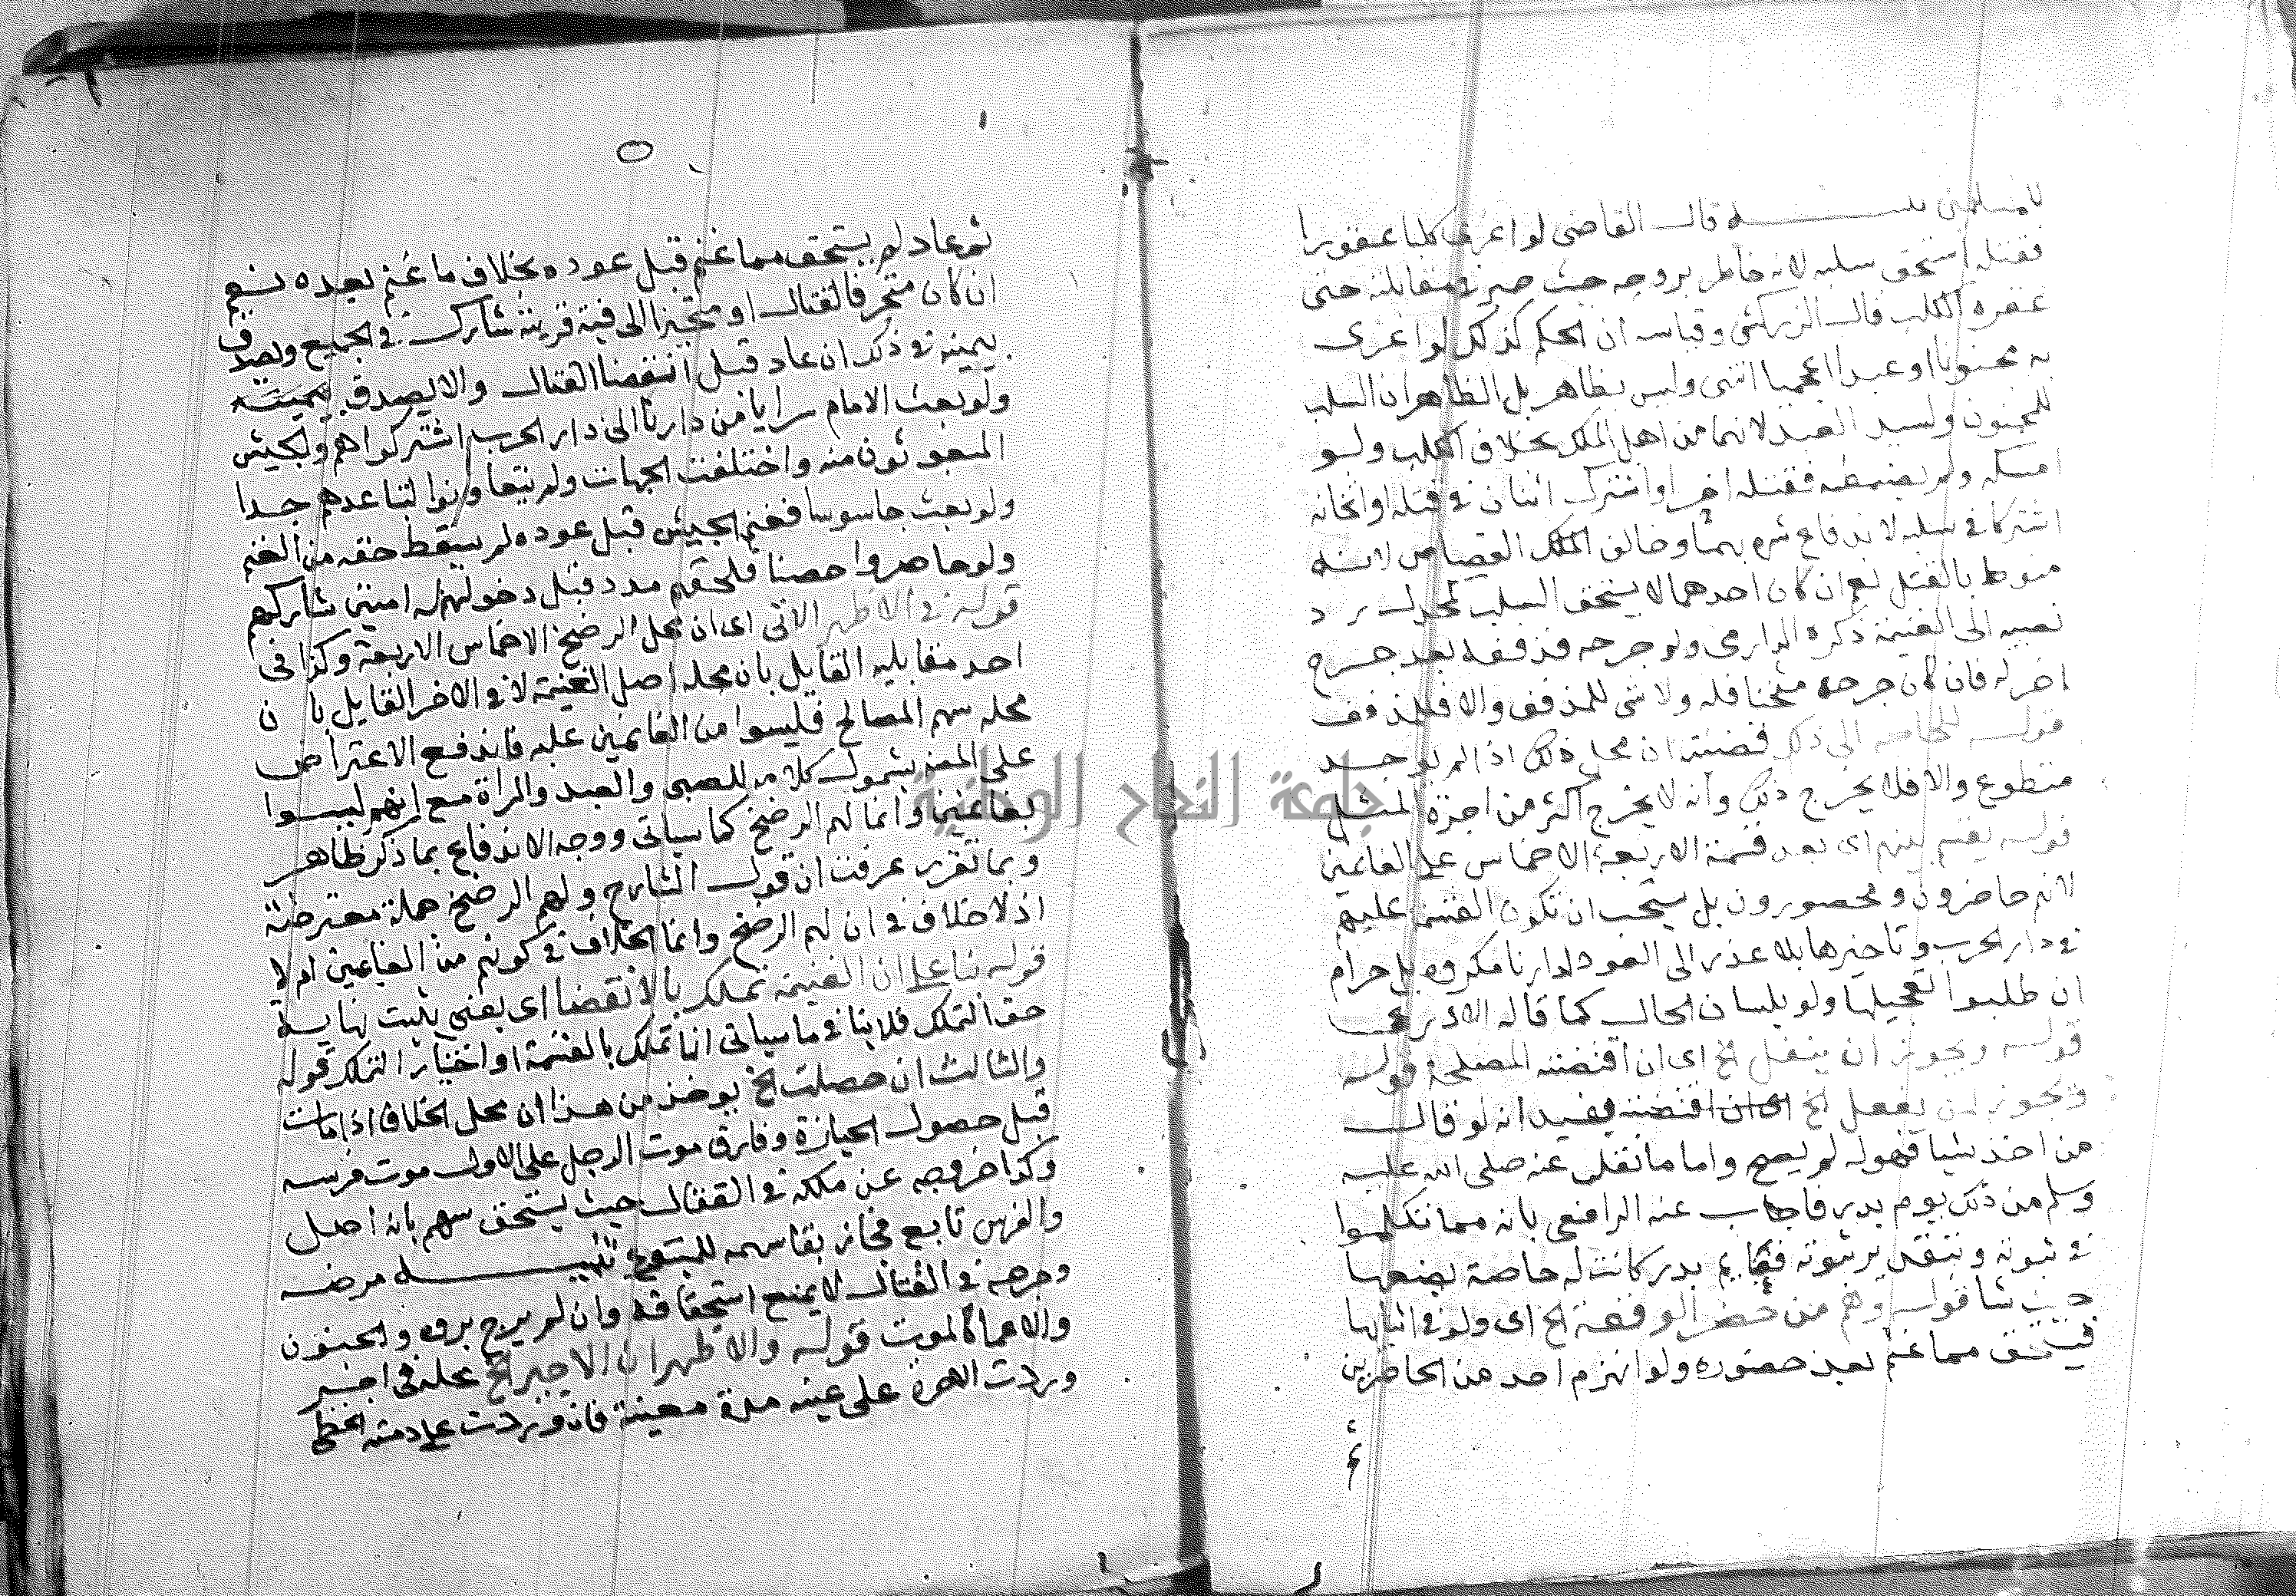 للمسلمين تنبيه قال القاضي لو اغرى كلبا عقورا
فقتله استحق سلبه لانه خاطر بروحه حيث صبر في مقابلته حتى
عقره الكلب قال الزركشي وقياسه ان الحكم كذلك لو اغرى
به مجنونا او عبدا اعجميا انتهى وليس بظاهر بل الظاهر ان السلب
للمجنون ولسيد العبد لانهما من اهل الملك بخلاف الكلب ولو
امسكه ولم يضبطه فقتله اخر او اشترك اثنان في قتله او اثخانه
اشتركا في سلبه لاندفاع شره بهما وخالف الملك القصاص لانه
منوط بالقتل نعم ان كان احدهما لا يستحق السلب رد
نصيبه الى الغنيمة ذكره الدارمي ولو جرحه فذففه بعد جرح
اخر له فان كان جرحه مثخنا فله ولا شي للمذفف والا فللمذفف
قوله للحاجة الى ذلك قضيته ان محل ذلك اذا لم يوجد
متطوع والا فلا يخرج ذلك وانه لا يخرج اكثر من اجرة المثل
قوله يقسم بينهم اى بعد قسمة الاربعة الاخماس على الغانمين
لانهم حاضرون ومحصورون بل يستحب ان تكون القسمة عليهم
في دار الحرب وتاخيرها بلا عذر الى العود لدارنا مكروه بل حرام
ان طلبوا تعجيلها ولو بلسان الحال كما قاله الاذرعي
قوله ويجوز ان ينفل الخ اى ان اقتضته المصلحة قوله
ويجوز ان يفعل الخ اى ان اقتضته يفيد انه لو قال
من اخذ شيا فهو له لم يصح واما ما نقل عنه صلى الله عليه
وسلم من ذلك يوم بدر فاجاب عنه الرافعي بانه مما تكلموا
في ثبوته وبتقدير ثبوته فغنايم بدر كانت له خاصة يضعها
حيث شا قوله وهم من حضر الوقعة الخ اى ولو في اثنائها
فيستحق مما غنم بعد حضوره ولو انهزم احد من الحاضرين
ثم
ثم عاد لم يستحق مما غنم قبل عوده بخلاف ما غنم بعده نعم
ان كان متحرفا لقتال او متحيزا الى فية قريبة شارك في الجميع ويصدق
بيمينه في ذلك ان عاد قبل انقضا القتال والا يصدق بيمينه
ولو بعث الامام سرايا من دارنا الى دار الحرب اشتركوا هم والجيش
المبعوثون منه واختلفت الجهات ولم يتعاونوا لتباعدهم جدا
ولو بعث جاسوسا فغنم الجيش قبل عوده لم يسقط حقه من الغنم
ولو حاصروا حصنا فلحقهم مدد قبل دخولهم له امنين شاركهم
قوله في الاظهر الاتى اى ان محل الرضخ الاخماس الاربعة وكذا في
احد مقابليه القايل بان محله اصل الغنيمة لا في الاخر القايل بان
محله سهم المصالح فليسوا من الغانمين عليه فاندفع الاعتراض
على المصنف بشمول كلامه للصبى والعبد والمراة مع انهم ليسوا
بغانمين وانما لهم الرضخ كما سياتى ووجه الاندفاع بما ذكر ظاهر
وبما تقرر عرفت ان قول الشارح ولهم الرضخ جملة معترضة
اذ لا خلاف في ان لهم الرضخ وانما الخلاف في كونهم من الغانمين ام لا
قوله بنا على ان الغنيمة تملك بالانقضا اى بمعنى يثبت نهاية
حق التملك فلا ينافي ما سياتى انها تملك بالقسمة او اختيار التملك قوله
والثالث ان حصلت الخ يوخذ من هذا ان محل الخلاف اذا مات
قبل حصول الحيازة وفارق موت الرجل على الاول موت فرسه
وكذا خروجه عن ملكه في القتال حيث يستحق سهم بانه اصل
والفرس تابع فجاز بقا سهمه للمتبوع تنبيه مرضه
وجرحه في القتال لا يمنع استحقاقه وان لم يرج بروه والجنون
والاغما كالموت قوله والاظهر ان الاجير الخ محله في اجير
وردت الاجرة على عينه مدة معينة فان وردت على ذمته اعطى
جامعة النجاح الوطنية